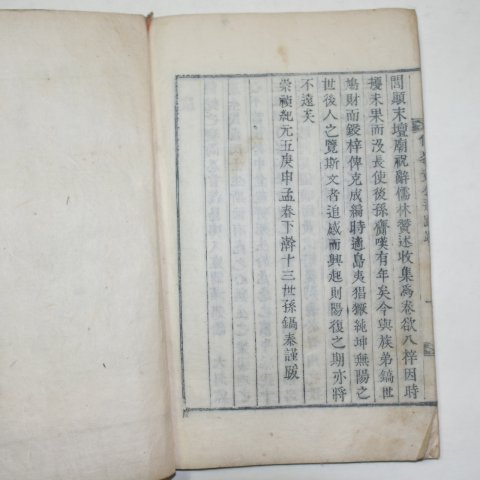 閭顯末壇廟祝辭儒林贊述收集爲卷欲入梓因時
擾未果而没長使後孫齎嘆有年矣今與族弟鎬世
鳩財而鋟梓俾克成編時適島夷猖獗純坤無陽之
世後人之覽斯文者追感而興起則陽復之期亦將
不遠矣
崇禎紀元五庚申孟春下澣十三世孫鎬秦謹跋